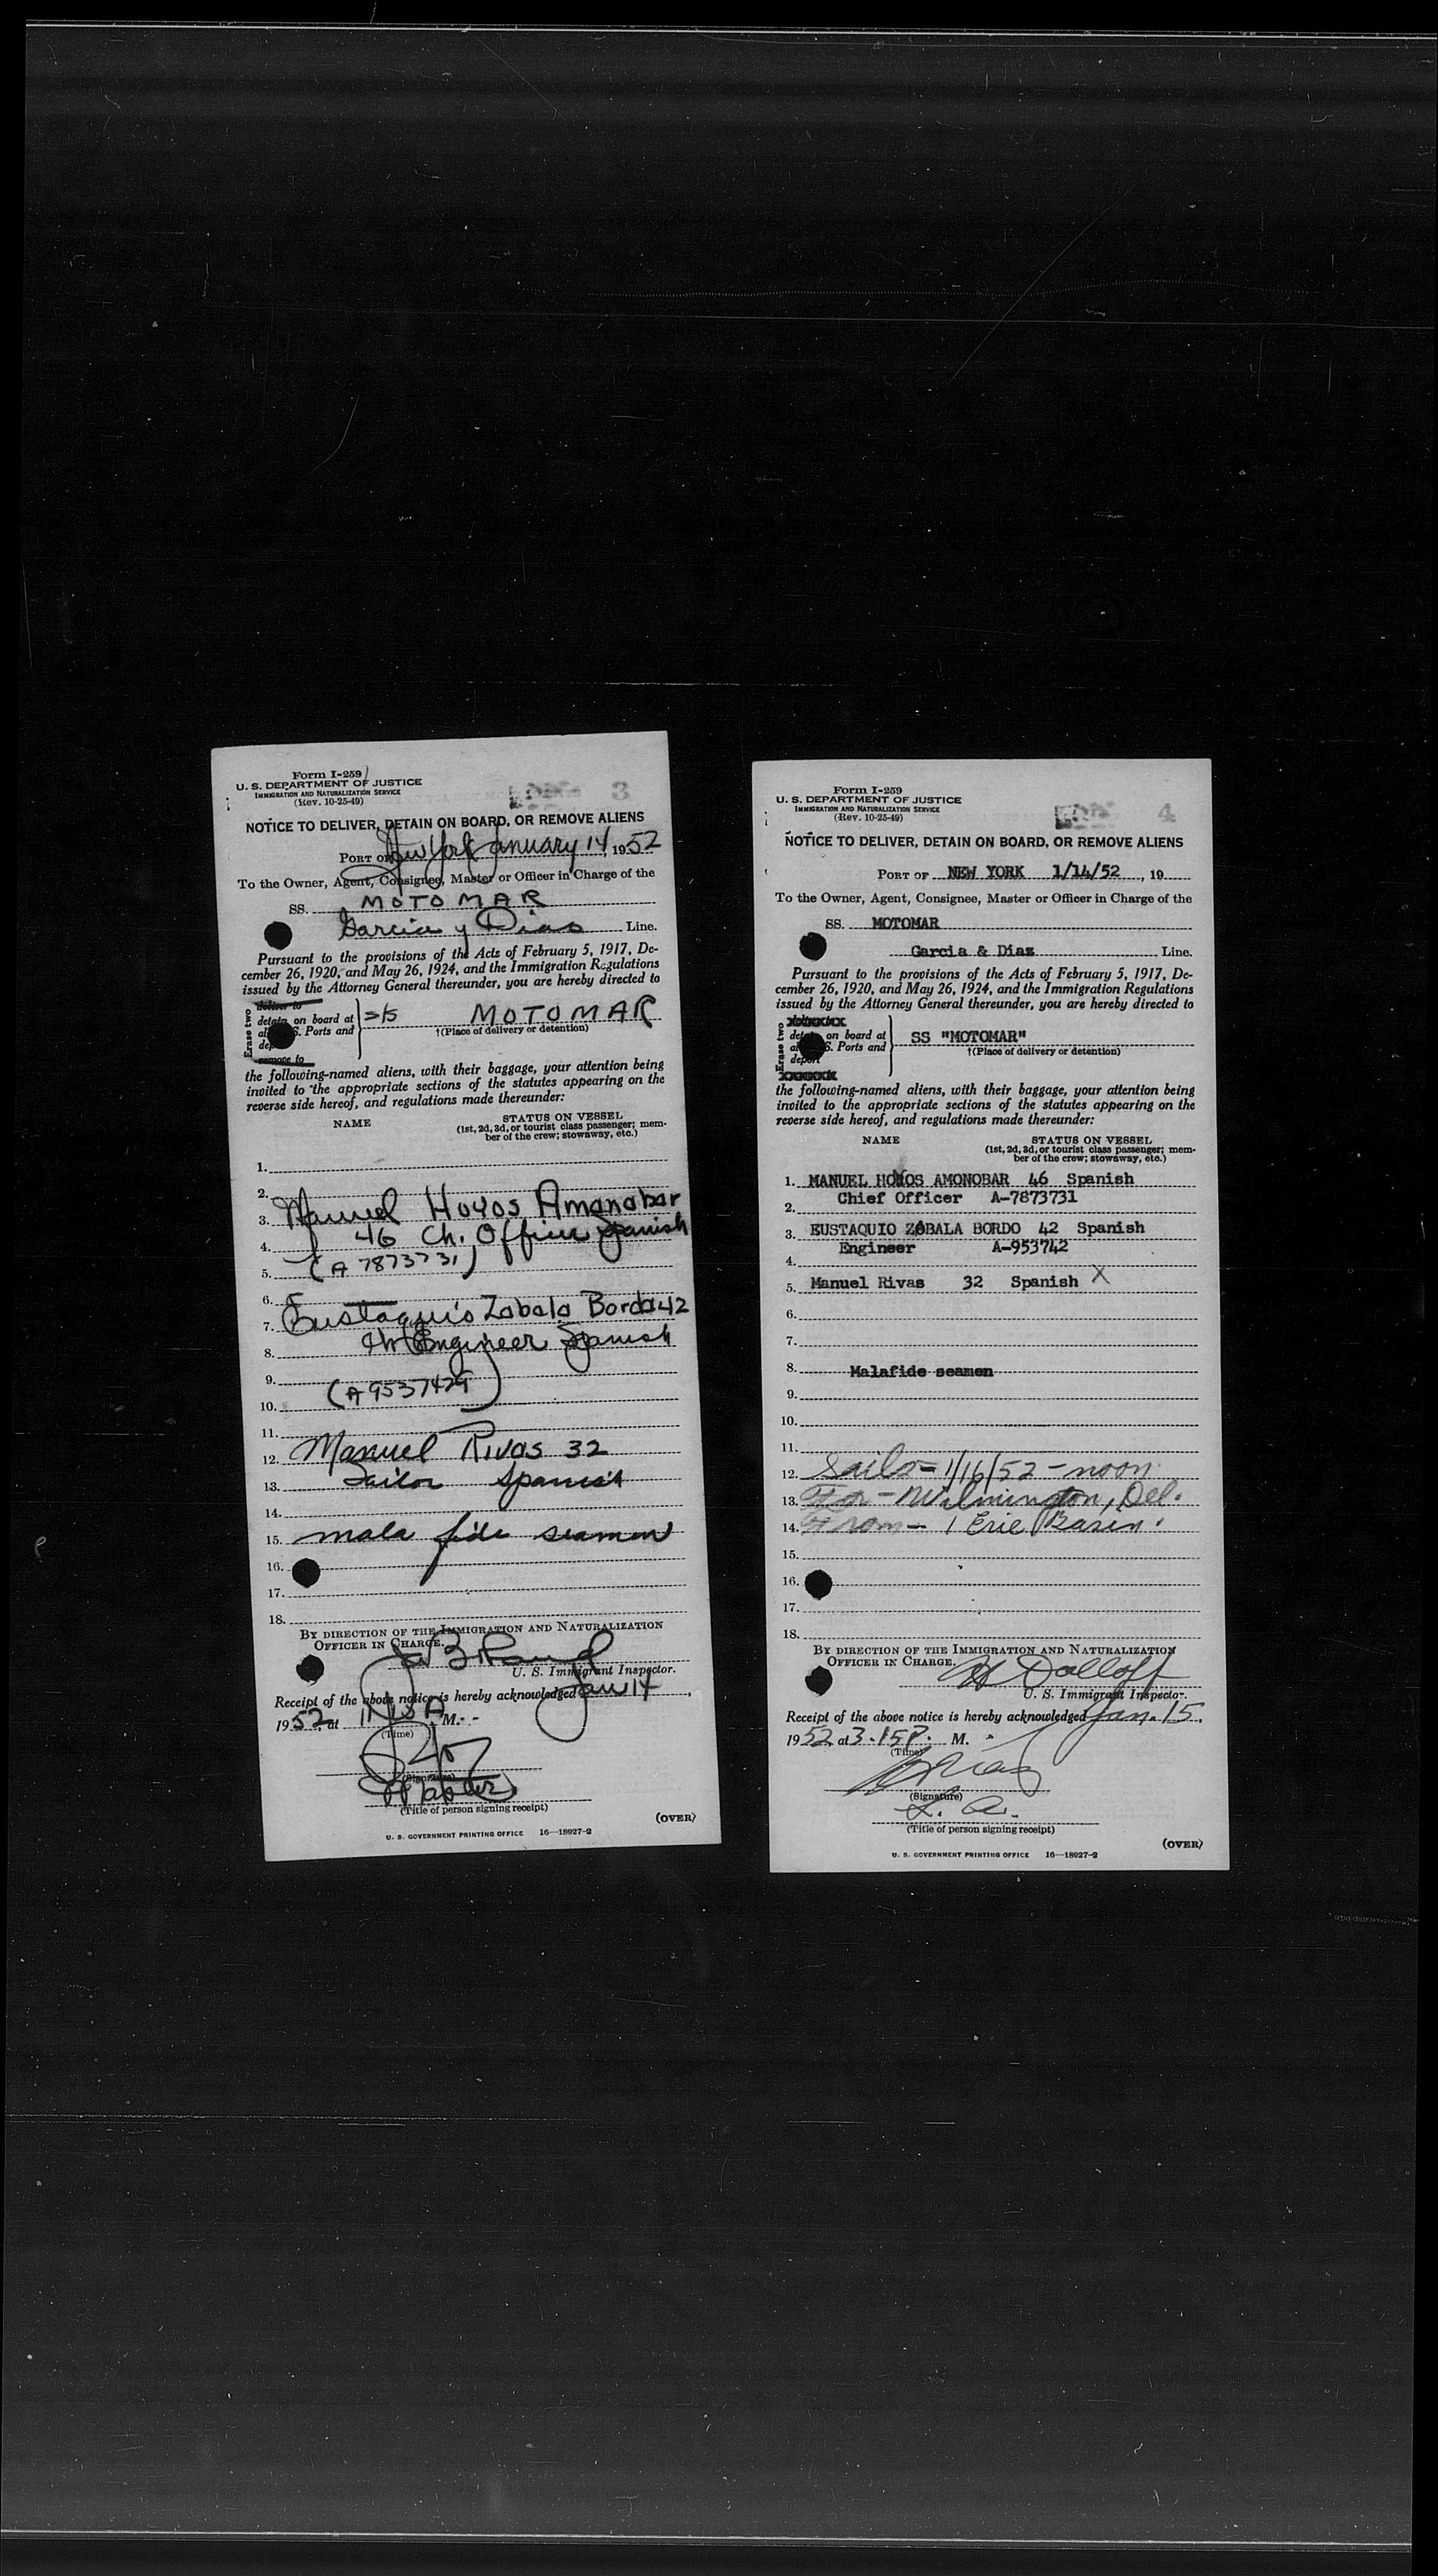 Form I-259
U. S. DEPARTMENT OF JUSTICE
IMMIGRATION AND NATURALIZATION SERVICE
(Rev. 10-25-49)
3
NOTICE TO DELIVER, DETAIN ON BOARD, OR REMOVE ALIENS
PORT OF New York January 14, 1952
To the Owner, Agent, Consignee, Master or Officer in Charge of the
SS. MOTOMAR
Garcia y Dias Line.
Pursuant to the provisions of the Acts of February 5, 1917, De-
cember 26, 1920, and May 26, 1924, and the Immigration Regulations
issued by the Attorney General thereunder, you are hereby directed to
Erase two
deliver to
detain on board at
S. Ports and
MOTOMAR
†(Place of delivery or detention)
remove to
the following-named aliens, with their baggage, your attention being
invited to the appropriate sections of the statutes appearing on the
reverse side hereof, and regulations made thereunder:
NAME STATUS ON VESSEL
(1st, 2d, 3d, or tourist class passenger; mem-
ber of the crew; stowaway, etc.)
1.
2.
3. Manuel Hoyos Amonobar
4. 46 Ch. Officer Spanish
5. (A 7873731)
6.
7. Eustaquio Zabala Bordo 42
8. Engineer Spanish
9.
10. (A 9537429)
11.
12. Manuel Rivas 32
13. Sailor Spanish
14.
15. mala fide seamen
16.
17.
18.
BY DIRECTION OF THE IMMIGRATION AND NATURALIZATION
OFFICER IN CHARGE.
U. S. Immigrant Inspector.
Receipt of the above notice is hereby acknowledged Jan 14,
1952, at A M.
(Time)
(Signature)
Master
(Title of person signing receipt)
(OVER)
U. S. GOVERNMENT PRINTING OFFICE 16—18927-2
Form I-259
U. S. DEPARTMENT OF JUSTICE
IMMIGRATION AND NATURALIZATION SERVICE
(Rev. 10-25-49)
4
NOTICE TO DELIVER, DETAIN ON BOARD, OR REMOVE ALIENS
PORT OF NEW YORK 1/14/52, 19
To the Owner, Agent, Consignee, Master or Officer in Charge of the
SS. MOTOMAR
Garcia & Diaz Line.
Pursuant to the provisions of the Acts of February 5, 1917, De-
cember 26, 1920, and May 26, 1924, and the Immigration Regulations
issued by the Attorney General thereunder, you are hereby directed to
Erase two
on board at
S. Ports and
deport
SS "MOTOMAR"
†(Place of delivery or detention)
the following-named aliens, with their baggage, your attention being
invited to the appropriate sections of the statutes appearing on the
reverse side hereof, and regulations made thereunder:
NAME STATUS ON VESSEL
(1st, 2d, 3d, or tourist class passenger; mem-
ber of the crew; stowaway, etc.)
1. MANUEL HOYOS AMONOBAR 46 Spanish
2. Chief Officer A-7873731
3. EUSTAQUIO ZABALA BORDO 42 Spanish
4. Engineer A-953742
5. Manuel Rivas 32 Spanish X
6.
7.
8. Malafide seamen
9.
10.
11.
12. Sails - 1/16/52 - noon
13. For - Wilmington, Del.
14. From - 1 Erie Basin.
15.
16.
17.
18.
BY DIRECTION OF THE IMMIGRATION AND NATURALIZATION
OFFICER IN CHARGE.
U. S. Immigrant Inspector.
Receipt of the above notice is hereby acknowledged Jan. 15,
1952, at 3.15 P. M.
(Time)
(Signature)
(Title of person signing receipt)
(OVER)
U. S. GOVERNMENT PRINTING OFFICE 16—18927-2